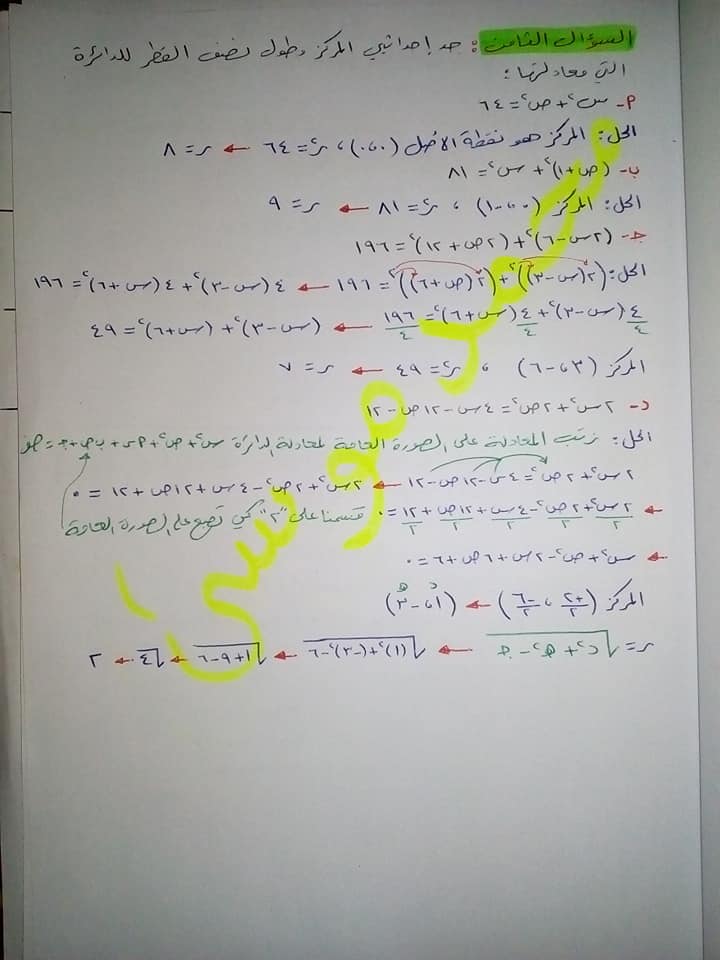 السؤال الثامن: جد إحداثيي المركز وطول نصف القطر للدائرة
التي معادلتها:
أ- س² + ص² = ٦٤
الحل: المركز هو نقطة الأصل (٠،٠) ، ر² = ٦٤ ← ر = ٨
ب- (ص+١)² + س² = ٨١
الحل: المركز (٠،-١) ، ر² = ٨١ ← ر = ٩
جـ- (٢س-٦)² + (٢ص+١٢)² = ١٩٦
الحل: (٢(س-٣))² + (٢(ص+٦))² = ١٩٦ ← ٤(س-٣)² + ٤(س+٦)² = ١٩٦
٤/٤ (س-٣)² + ٤/٤ (س+٦)² = ١٩٦/٤ ← (س-٣)² + (س+٦)² = ٤٩
المركز (٣،-٦) ، ر² = ٤٩ ← ر = ٧
د- ٢س² + ٢ص² = ٤س - ١٢ص - ١٢
الحل: نرتب المعادلة على الصورة العامة لمعادلة الدائرة س² + ص² + أس + ب ص + جـ = صفر
٢س² + ٢ص² = ٤س - ١٢ص - ١٢ ← ٢س² + ٢ص² - ٤س + ١٢ص + ١٢ = ٠
← ٢س²/٢ + ٢ص²/٢ - ٤س/٢ + ١٢ص/٢ + ١٢/٢ = ٠ قسمنا على "٢" كي تصبح على الصورة العامة
← س² + ص² - ٢س + ٦ص + ٦ = ٠
المركز (+٢/٢ ، -٦/٢) ← (١ ، -٣) د هـ
ر = √(د² + هـ² - جـ) ← √((١)² + (-٣)² - ٦) ← √(١+٩-٦) ← √٤ ← ٢